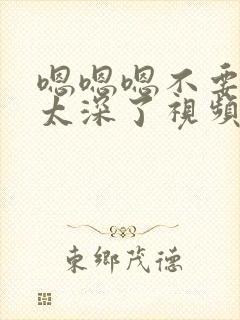 嗯嗯嗯不要
太深了視頻
東鄉茂德